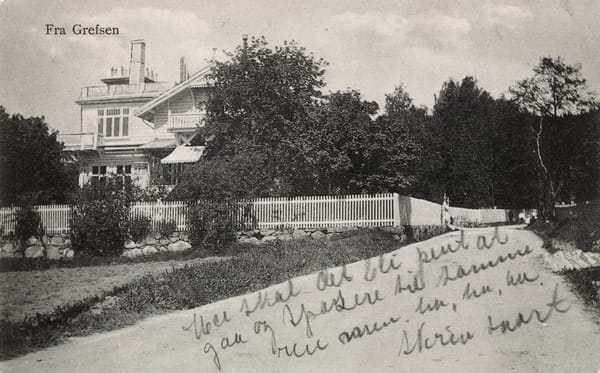 Fra Grefsen
Nei skal det bli pent at
gaa og spasere til samme
ven naren. ha, ha, ha.
Skriv snart